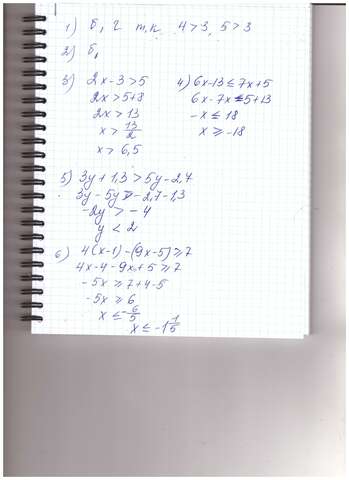 1) б, г т.к 4>3, 5>3
2) б,
3) 2x-3>5
2x>5+8
2x>13
x>13/2
x>6,5
4) 6x-13≤7x+5
6x-7x≤5+13
-x≤18
x≥-18
5) 3y+1,3>5y-2,7
3y-5y>-2,7-1,3
-2y>-4
y<2
6) 4(x-1)-(9x-5)≥7
4x-4-9x+5≥7
-5x≥7+4-5
-5x≥6
x≤-6/5
x≤-1 1/5